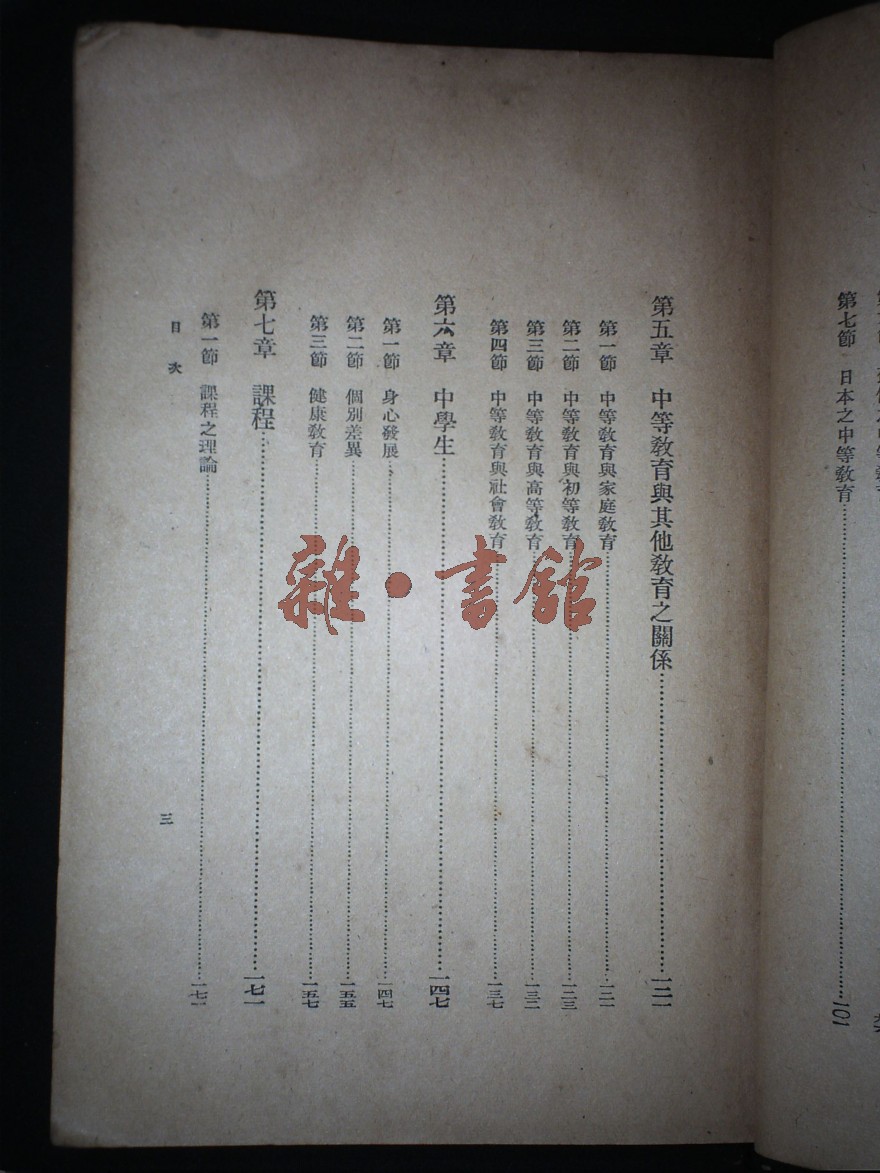 第七節 日本之中等教育……101
第五章 中等教育與其他教育之關係……一二一
第一節 中等教育與家庭教育……一二一
第二節 中等教育與初等教育……一二三
第三節 中等教育與高等教育……一三二
第四節 中等教育與社會教育……一三七
第六章 中學生……一四七
第一節 身心發展……一四七
第二節 個別差異……一五五
第三節 健康教育……一五七
第七章 課程……一七一
第一節 課程之理論……一七一
目次
三
雜·書館